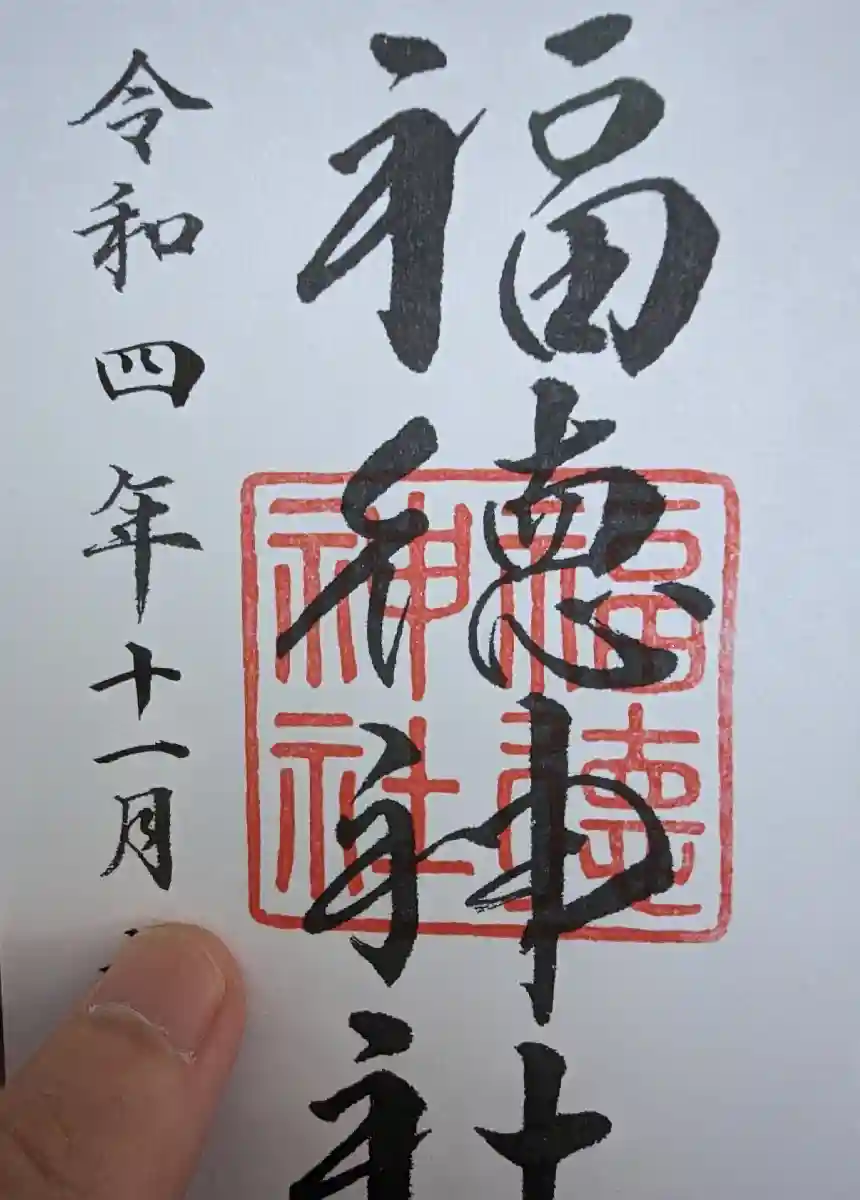 福徳神社
令和四年十一月
福徳
神社